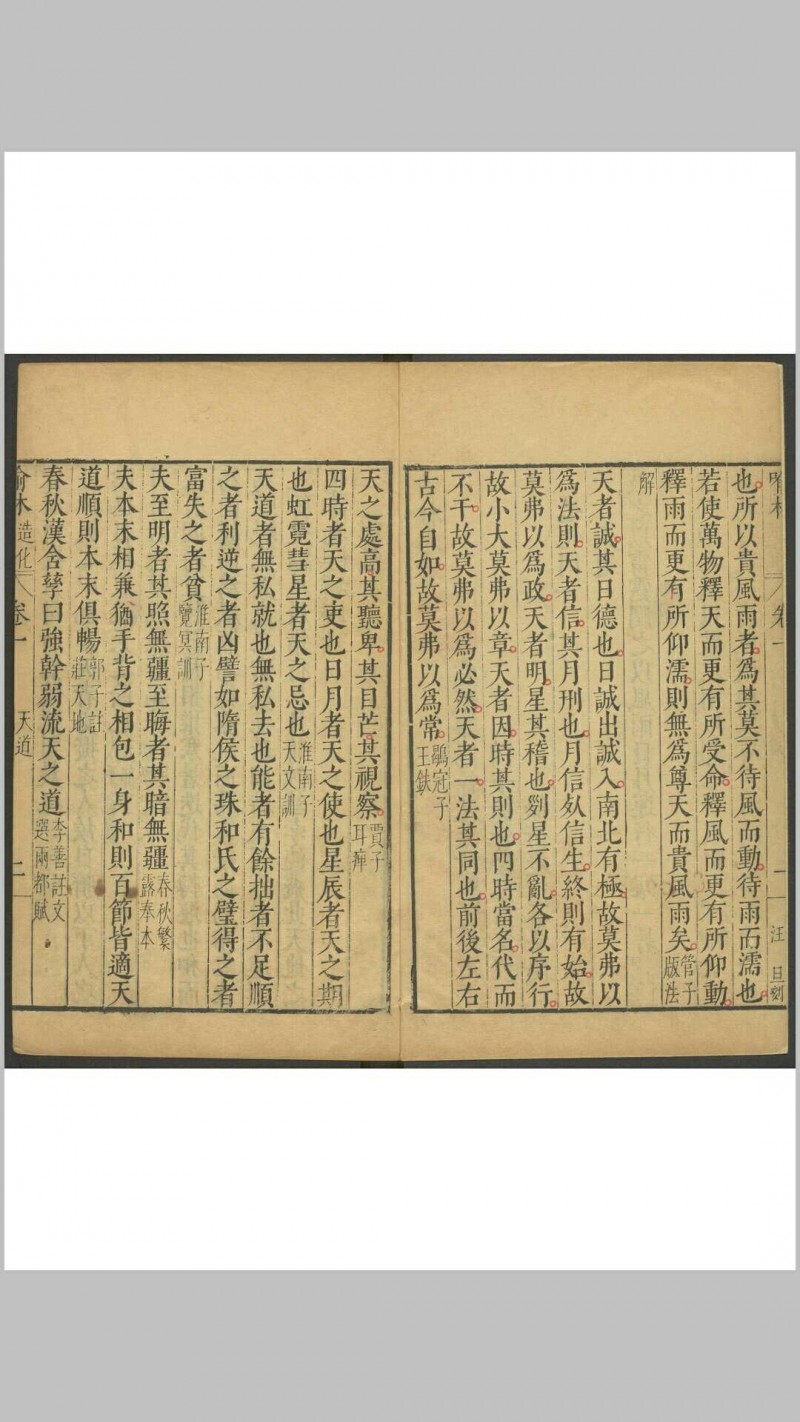 卷一
二
汪旦刻
也所以貴風雨者爲其莫不待風而動待雨而濡也
若使萬物釋天而更有所受命釋風而更有所仰動
釋雨而更有所仰濡則無爲尊天而貴風雨矣管子版法
解
天者誠其日德也日誠出誠入南北有極故莫弗以
爲法則天者信其月刑也月信死信生終則有始故
莫弗以爲政天者明星其稽也列星不亂各以序行
故小大莫弗以章天者因時其則也四時當名代而
不干故莫弗以爲必然天者一法其同也前後左右
古今自如故莫弗以爲常鶡冠子王鈇
天之處高其聽卑其目芒其視察賈子耳痺
四時者天之吏也日月者天之使也星辰者天之期
也虹霓彗星者天之忌也淮南子天文訓
天道者無私就也無私去也能者有餘拙者不足順
之者利逆之者凶譬如隋侯之珠和氏之璧得之者
富失之者貧淮南子覽冥訓
夫至明者其照無疆至晦者其暗無疆春秋繁露奉本
夫本末相兼猶手背之相包一身和則百節皆適天
道順則本末俱暢郭子註莊天地
春秋漢含孳曰強幹弱流天之道李善註文選兩都賦
喻林造化 卷一 天道 二